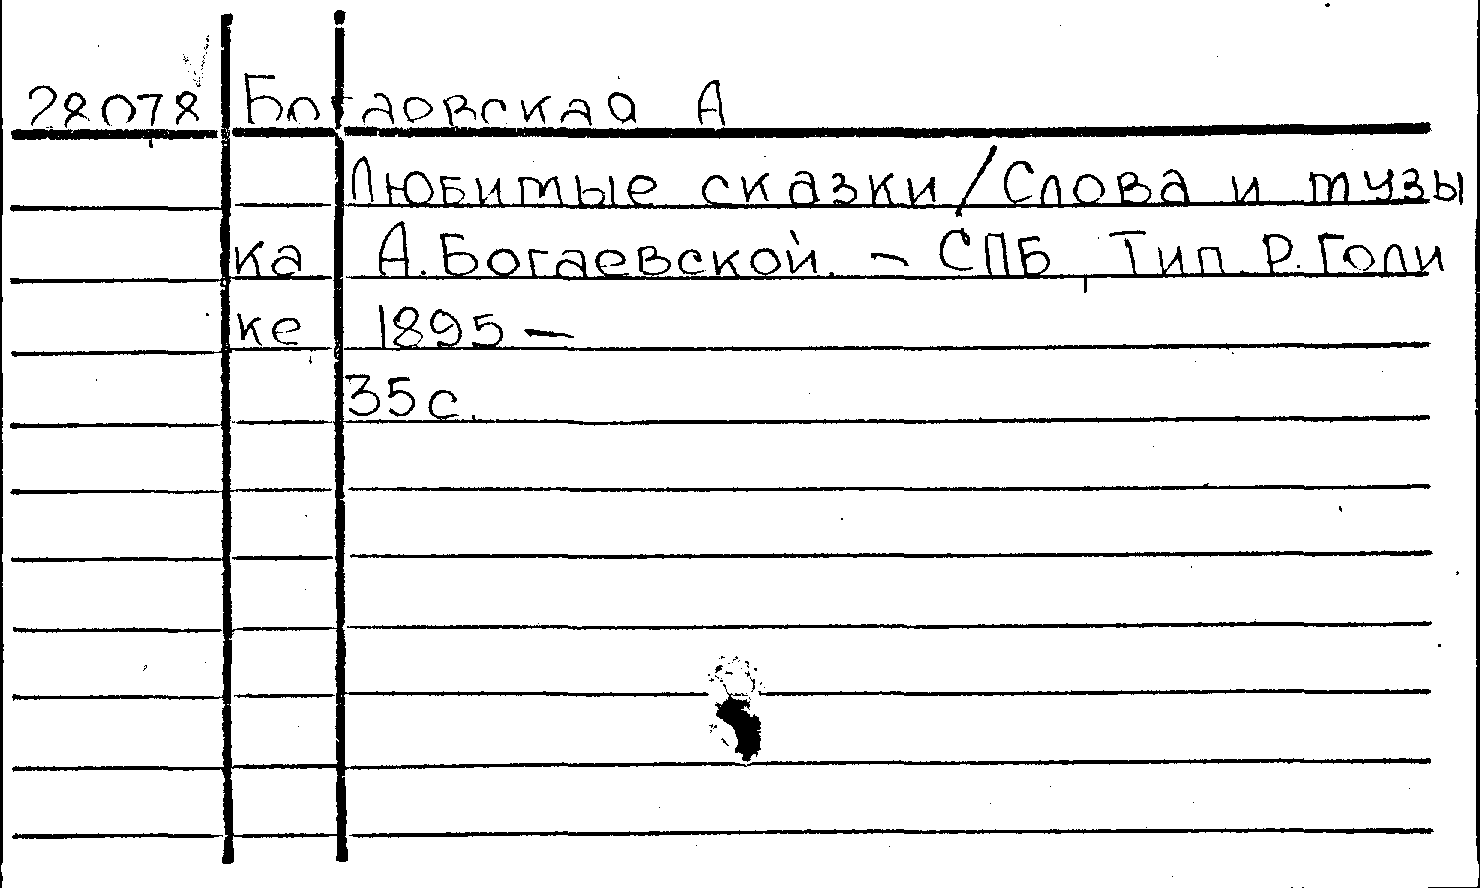 28078 Богаовская А
Любимые сказки / Слова и музы
ка А. Богаевской. - СПБ, Тип. Р. Голи
ке 1895 -
35 с.